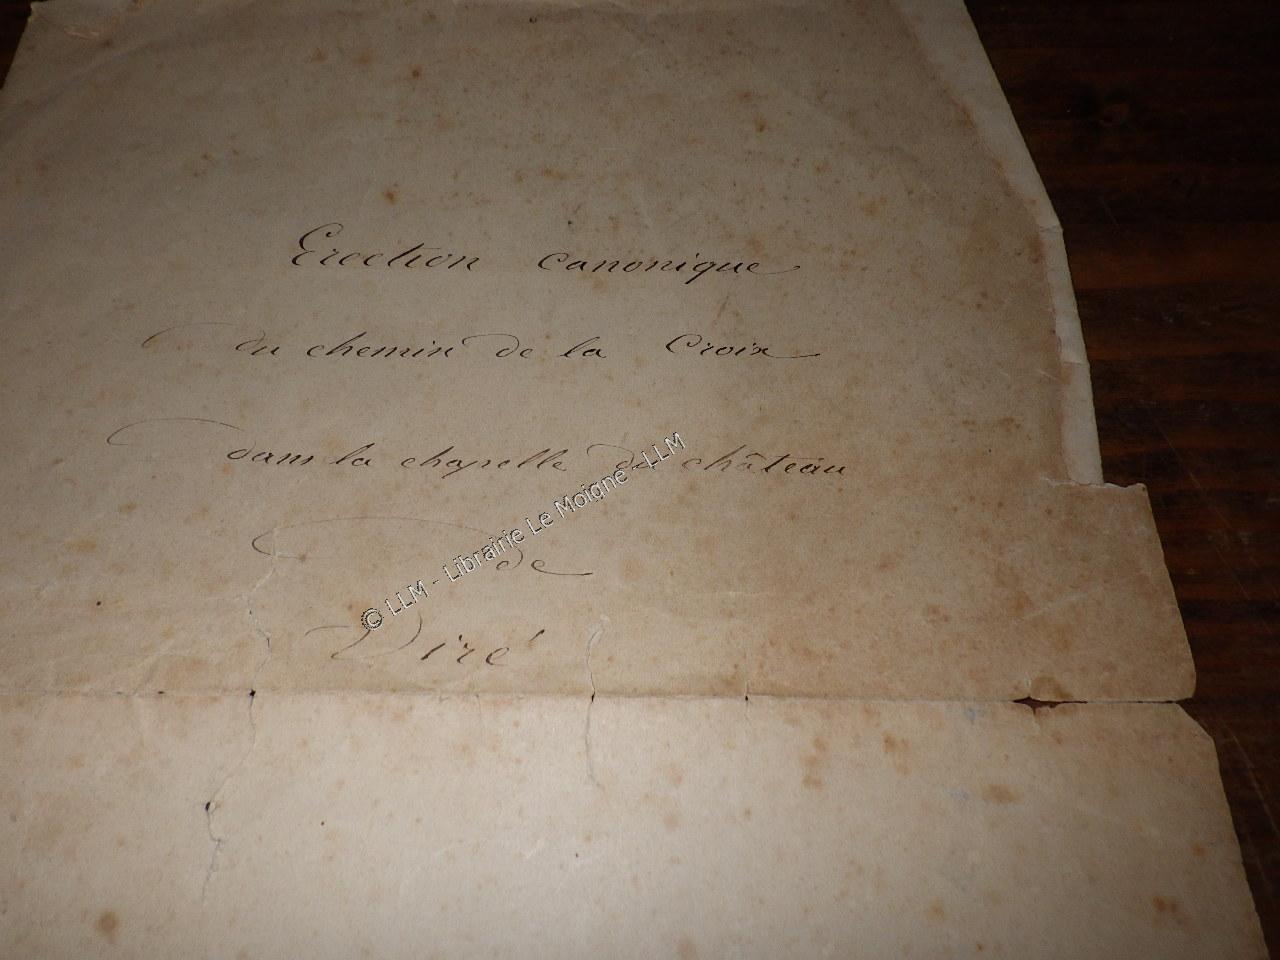 Erection canonique
du chemin de la Croix
dans la chapelle du château
de
Diré
© LLM - Librairie Le Moigne - LLM